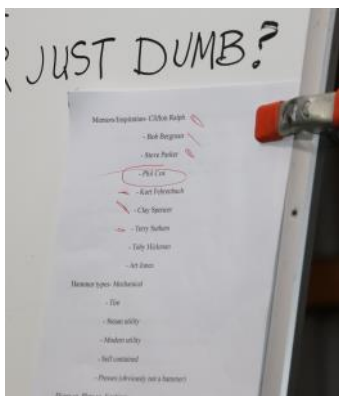 JUST DUMB?
Mentors/Inspiration- Clifton Ralph
- Bob Bergman
- Steve Parker
- Phil Cox
- Kurt Fehrenbach
- Clay Spencer
- Toby Hickman
- Art Jones
Hammer types- Mechanical
- Tire
- Steam utility
- Modern utility
- Self contained
- Presses (obviously not a hammer)